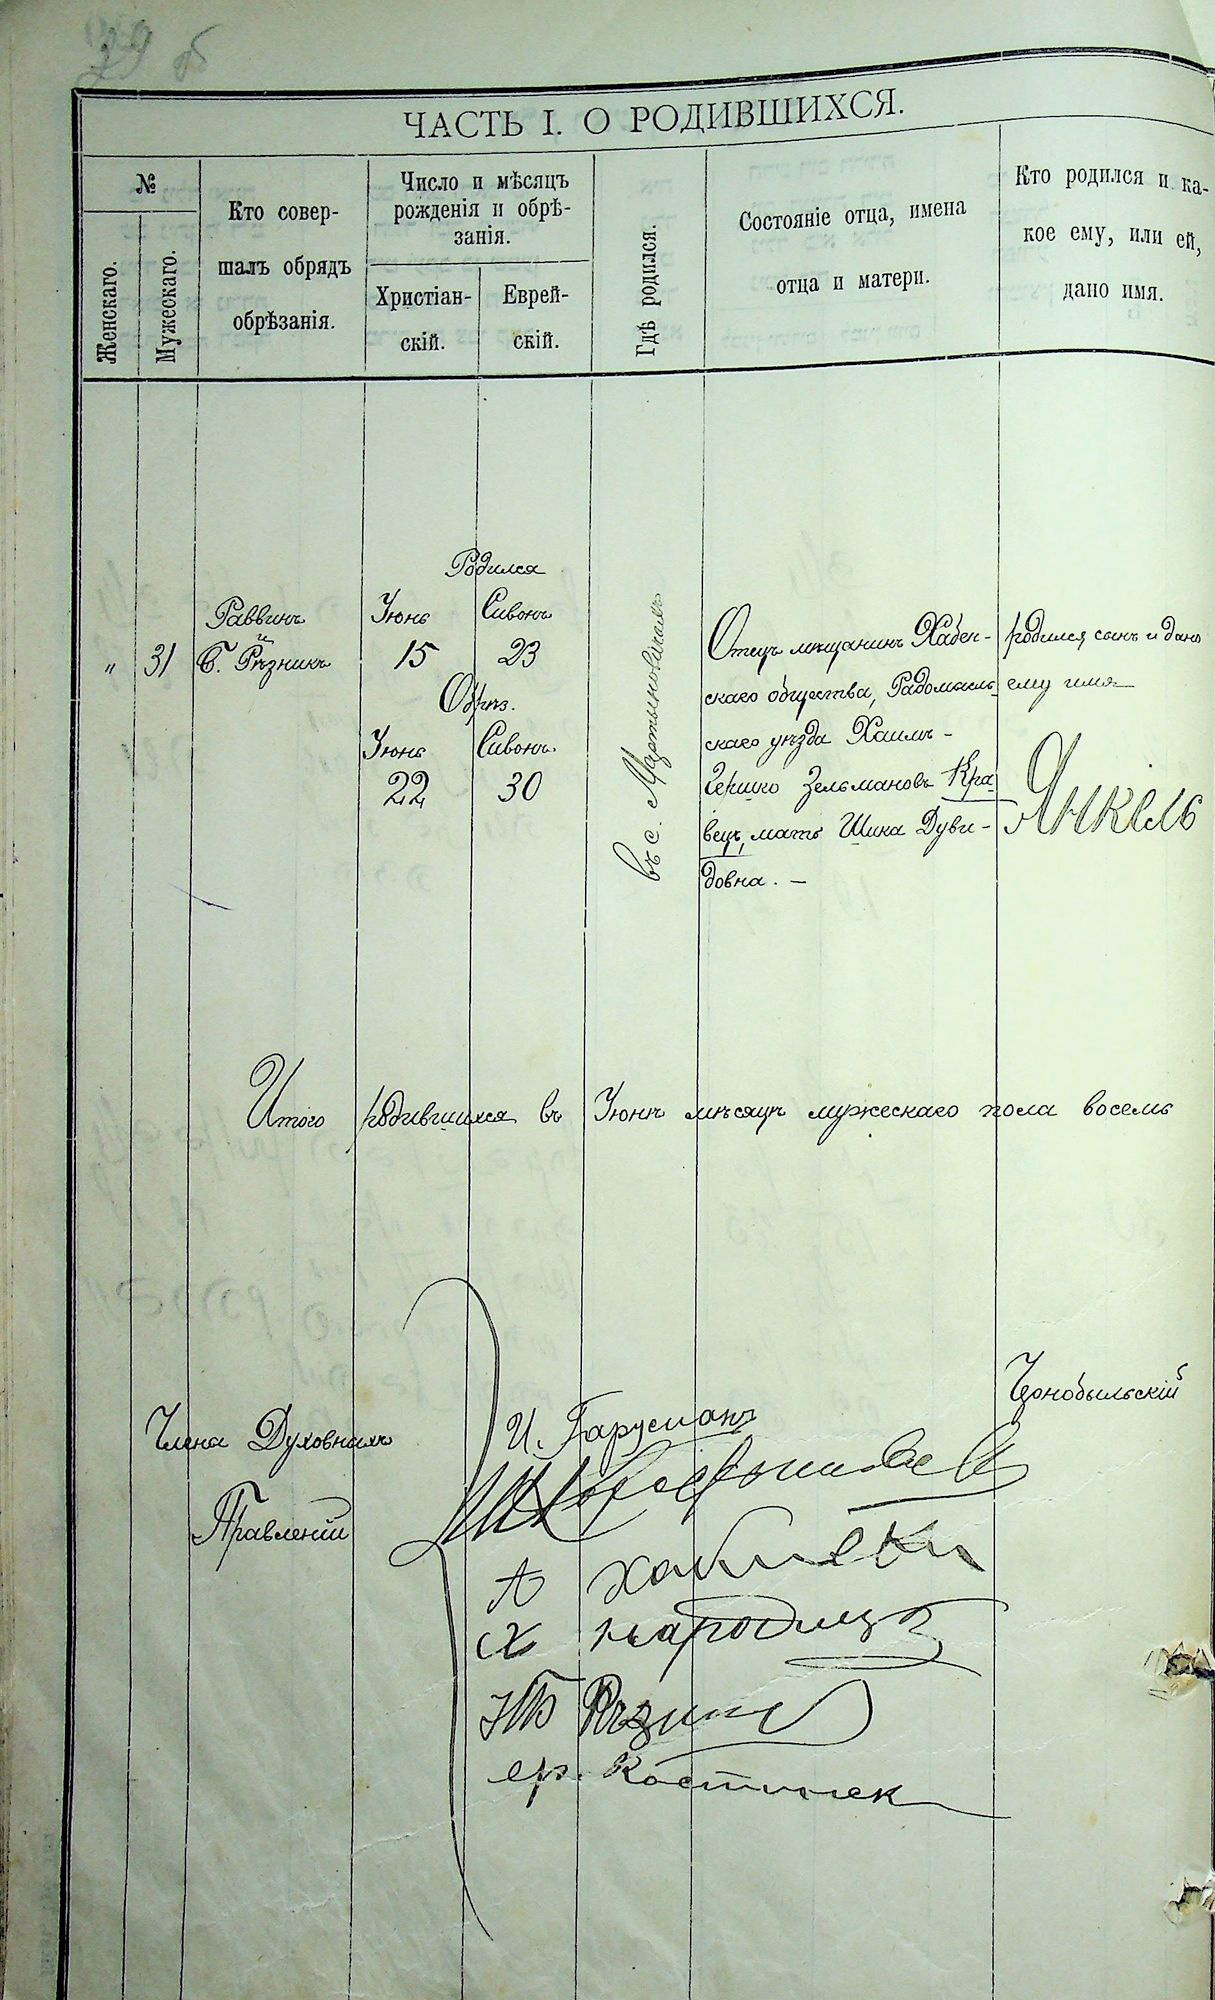 29 об
ЧАСТЬ I. О РОДИВШИХСЯ.
№
Женскаго.
Мужескаго.
Кто совер-
шалъ обрядъ
обрѣзанія.
Число и мѣсяцъ
рожденія и обрѣ-
занія.
Христіан-
скій.
Еврей-
скій.
Гдѣ родился.
Состояніе отца, имена
отца и матери.
Кто родился и ка-
кое ему, или ей,
дано имя.
"
31
Раввинъ
Б. Рѣзникъ
Родился
Іюнь Сивонъ
15 23
Обрѣз.
Іюнь Сивонъ
22 30
въ с. Мартыновичахъ
Отецъ мѣщанинъ Хабен-
скаго общества, Радомысль-
скаго уѣзда Хаимъ-
Гершко Зельмановъ Кра-
вецъ, мать Шика Дуви-
довна. —
родился сынъ и дано
ему имя
Янкель
Итого родившихся въ Іюнѣ мѣсяцѣ мужескаго пола восемь
Члена Духовныхъ
Правленій
И. Гарусманъ
Чонобыльскій
А
Х Народицк
Рѣзник